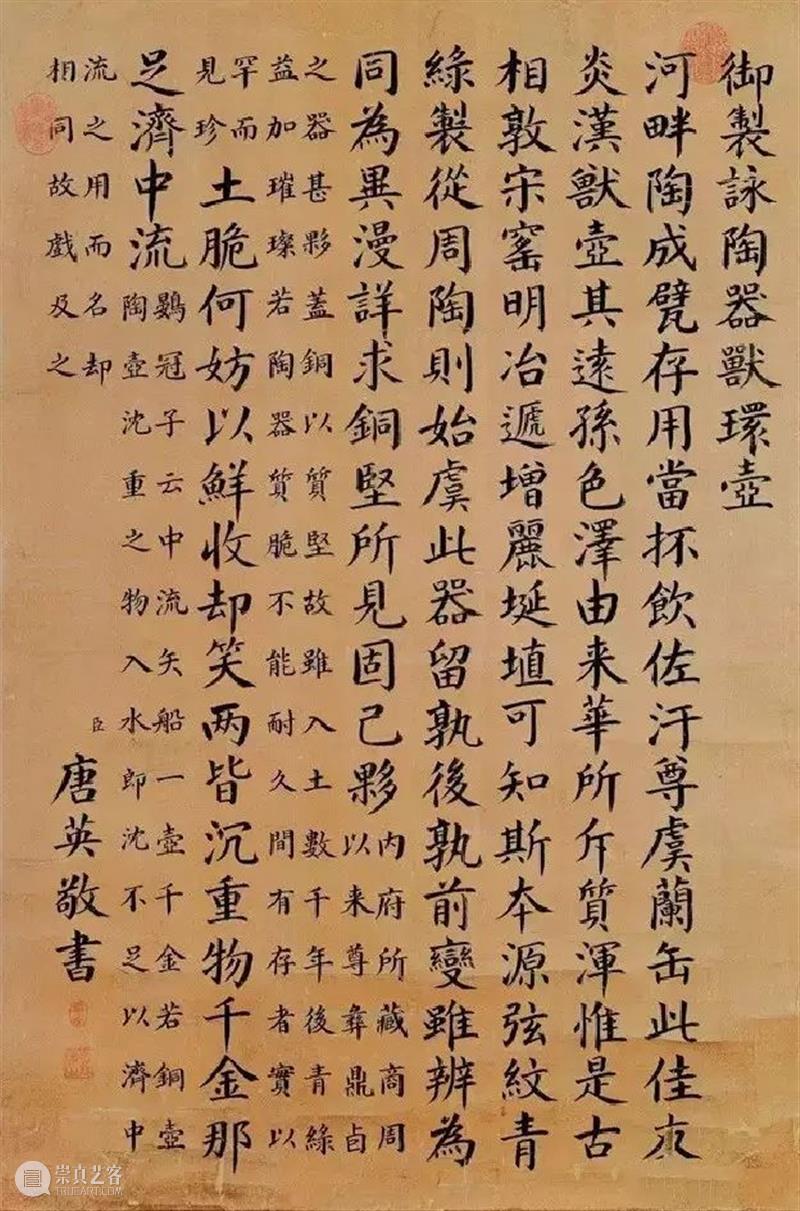 御製詠陶器獸環壺
河畔陶成甓存用當抔飲佐汙尊虞蘭缶此佳友
炎漢獸壺其遠孫色澤由来華所斥質渾惟是古
相敦宋窰明冶遞增麗埏埴可知斯夲源弦紋青
綠製從周陶則始虞此器留孰後孰前變雖辨為
同為異漫詳求銅堅所見固已夥
内府所藏商周
以来尊彝鼎卣
之器甚夥蓋銅以質堅故雖入土數千年後青綠
益加璀璨若陶器質脆不能耐久間有存者實以
罕而
見珍
土脆何妨以鮮收却笑两皆沉重物千金那
足濟中流
鶡冠子云中流失船一壺千金若銅壺
陶壺沈重之物入水即沈不足以濟中
流之用而名却
相同故戲及之
臣唐英敬書
崇真艺客
TRUEART.COM